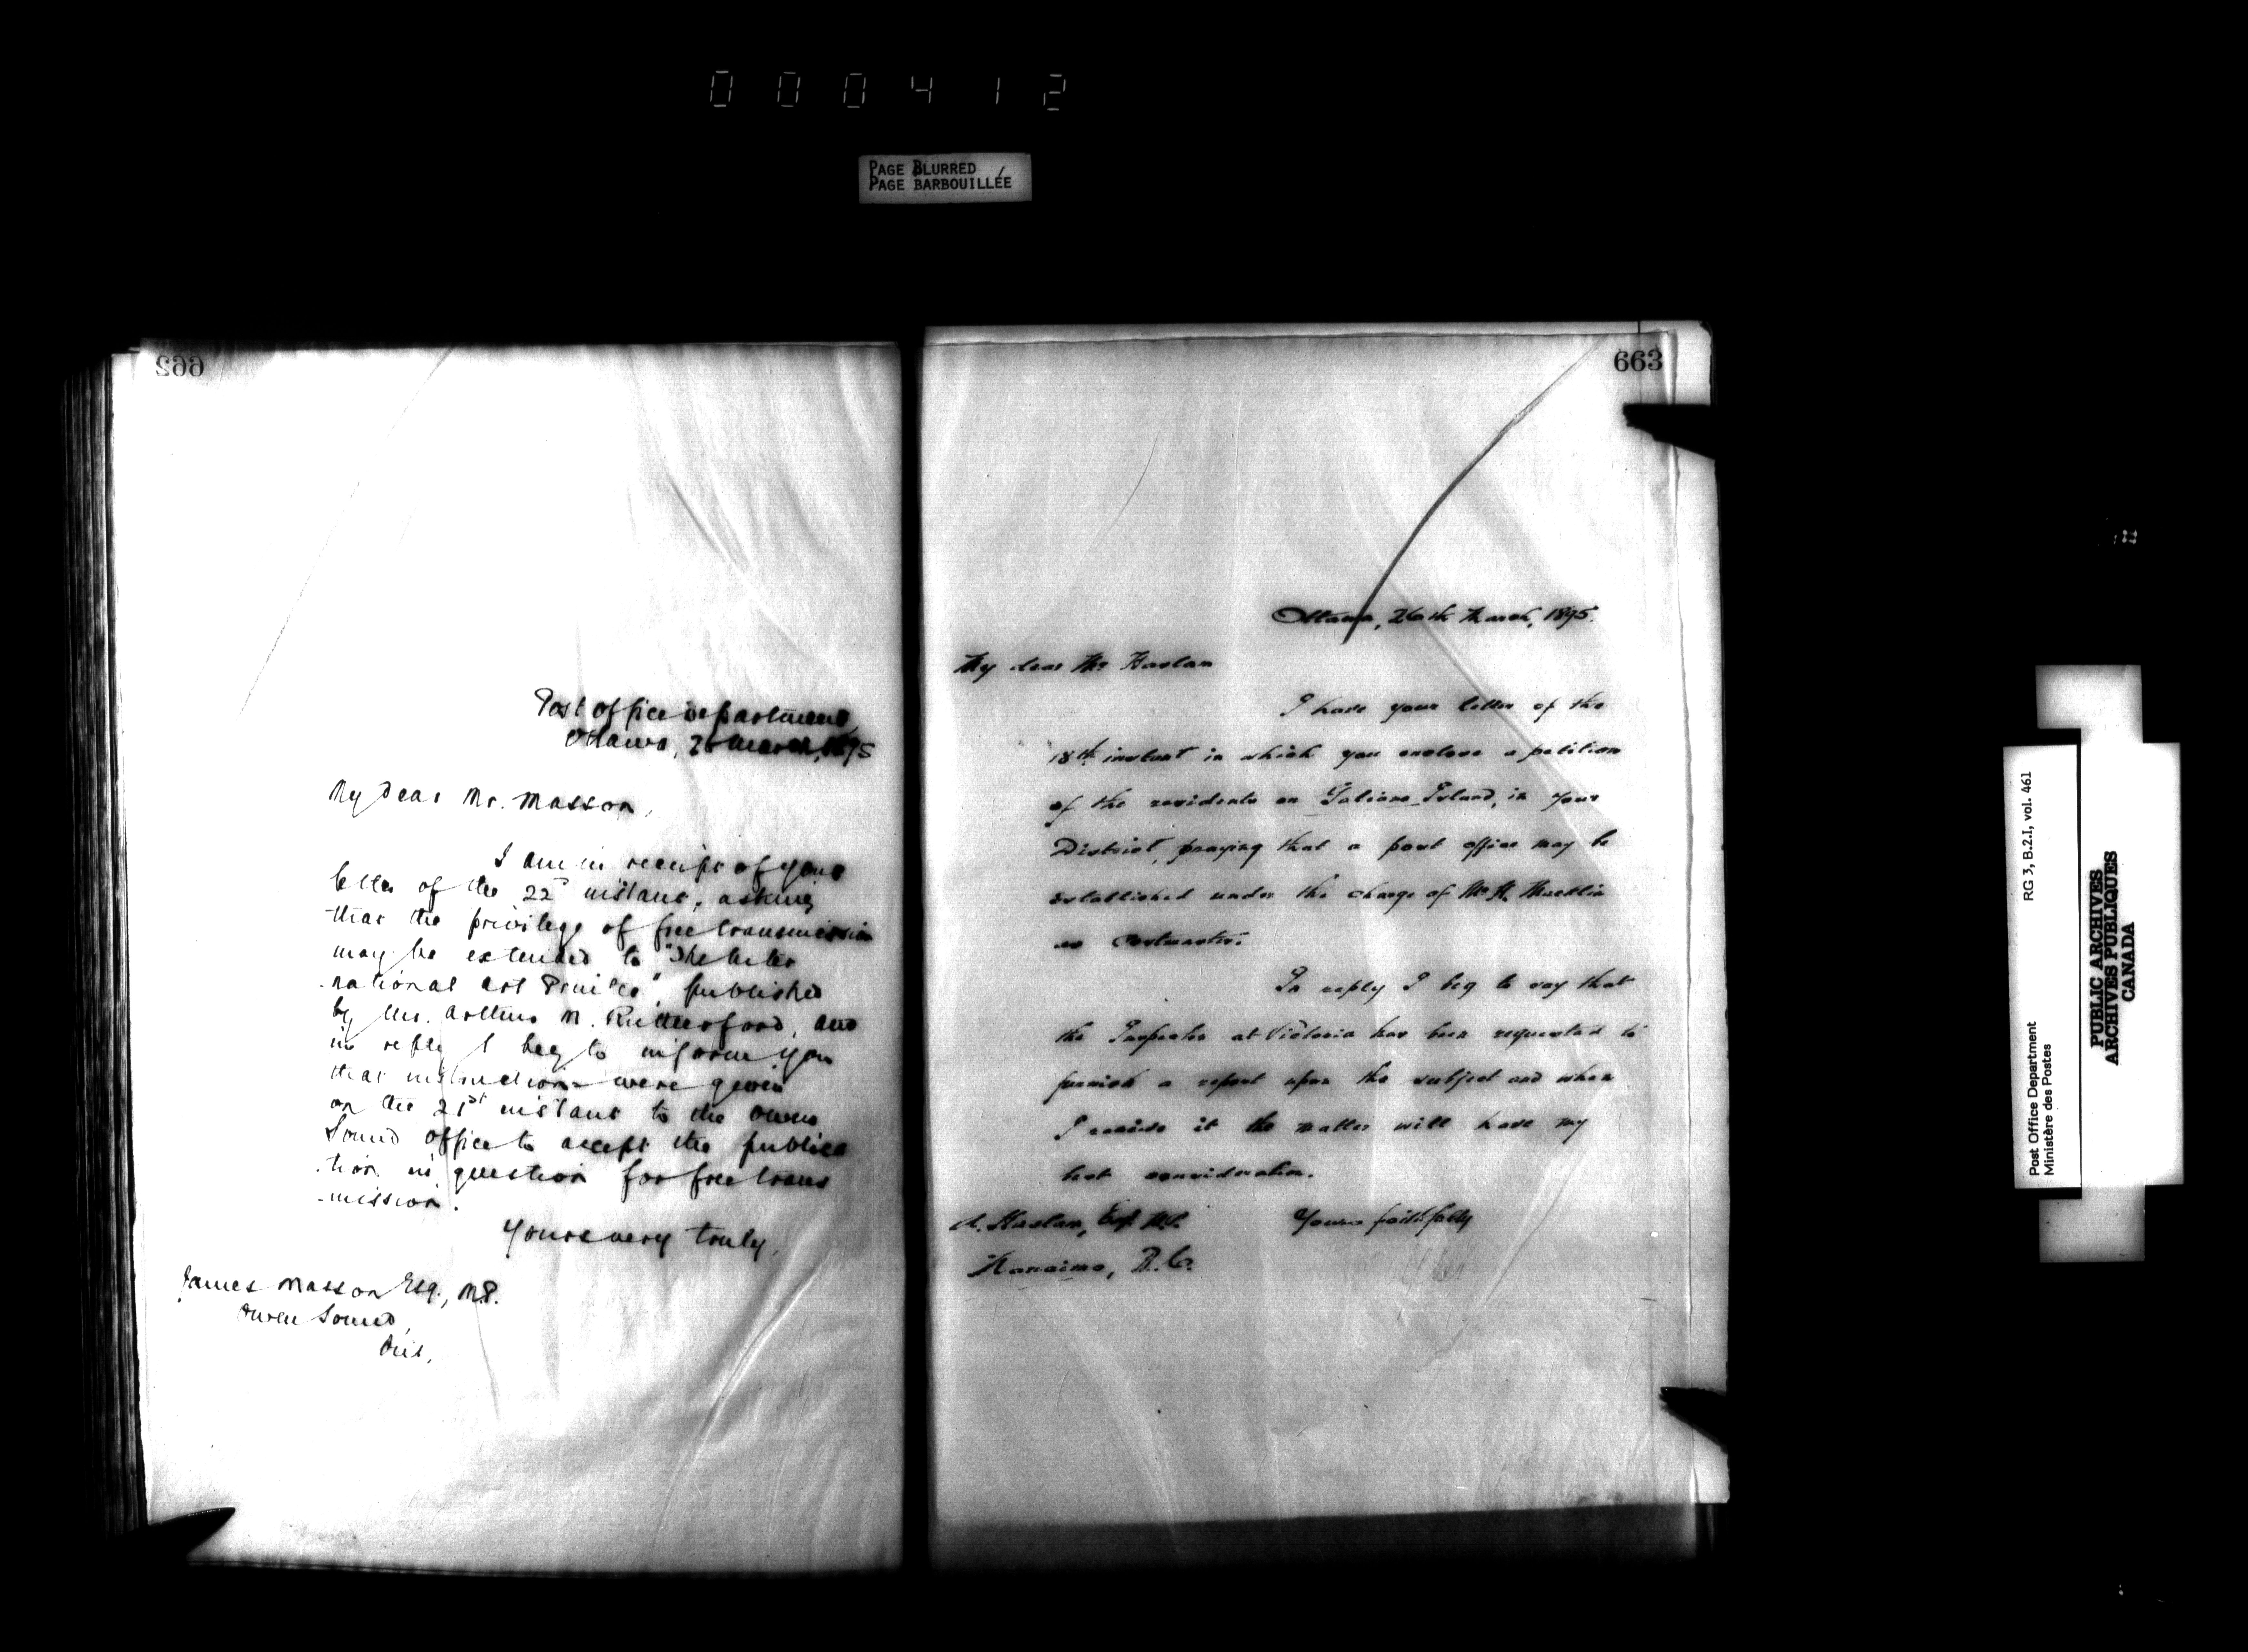 000412
PAGE BLURRED
PAGE BARBOUILLÉE
662
Post Office Department,
Ottawa, March, 1895
My Dear Mr. Masson,
I am in receipt of your
letter of the 22nd instant, asking
that the privilege of free transmission
may be extended to "The Inter
-national Art Printer", published
by Mr. Arthur M. Rutherford, and
in reply I beg to inform you
that instructions were given
on the 21st instant to the Owen
Sound office to accept the publica
-tion in question for free trans
-mission.
Yours very truly,
James Masson Esq., M.P.
Owen Sound,
Ont.
663
Ottawa, 26th March, 1895.
My dear Mr Haslam
I have your letter of the
18th instant in which you enclose a petition
of the residents on Galiano Island, in your
District, praying that a post office may be
established under the charge of Mr H. Macklin
as Postmaster.
In reply I beg to say that
the Inspector at Victoria has been requested to
furnish a report upon the subject and when
I receive it the matter will have my
best consideration.
Yours faithfully
A. Haslam, Esq. M.P.
Nanaimo, B.C.
Post Office Department
Ministère des Postes
RG 3, B.2.I, vol. 461
PUBLIC ARCHIVES
ARCHIVES PUBLIQUES
CANADA